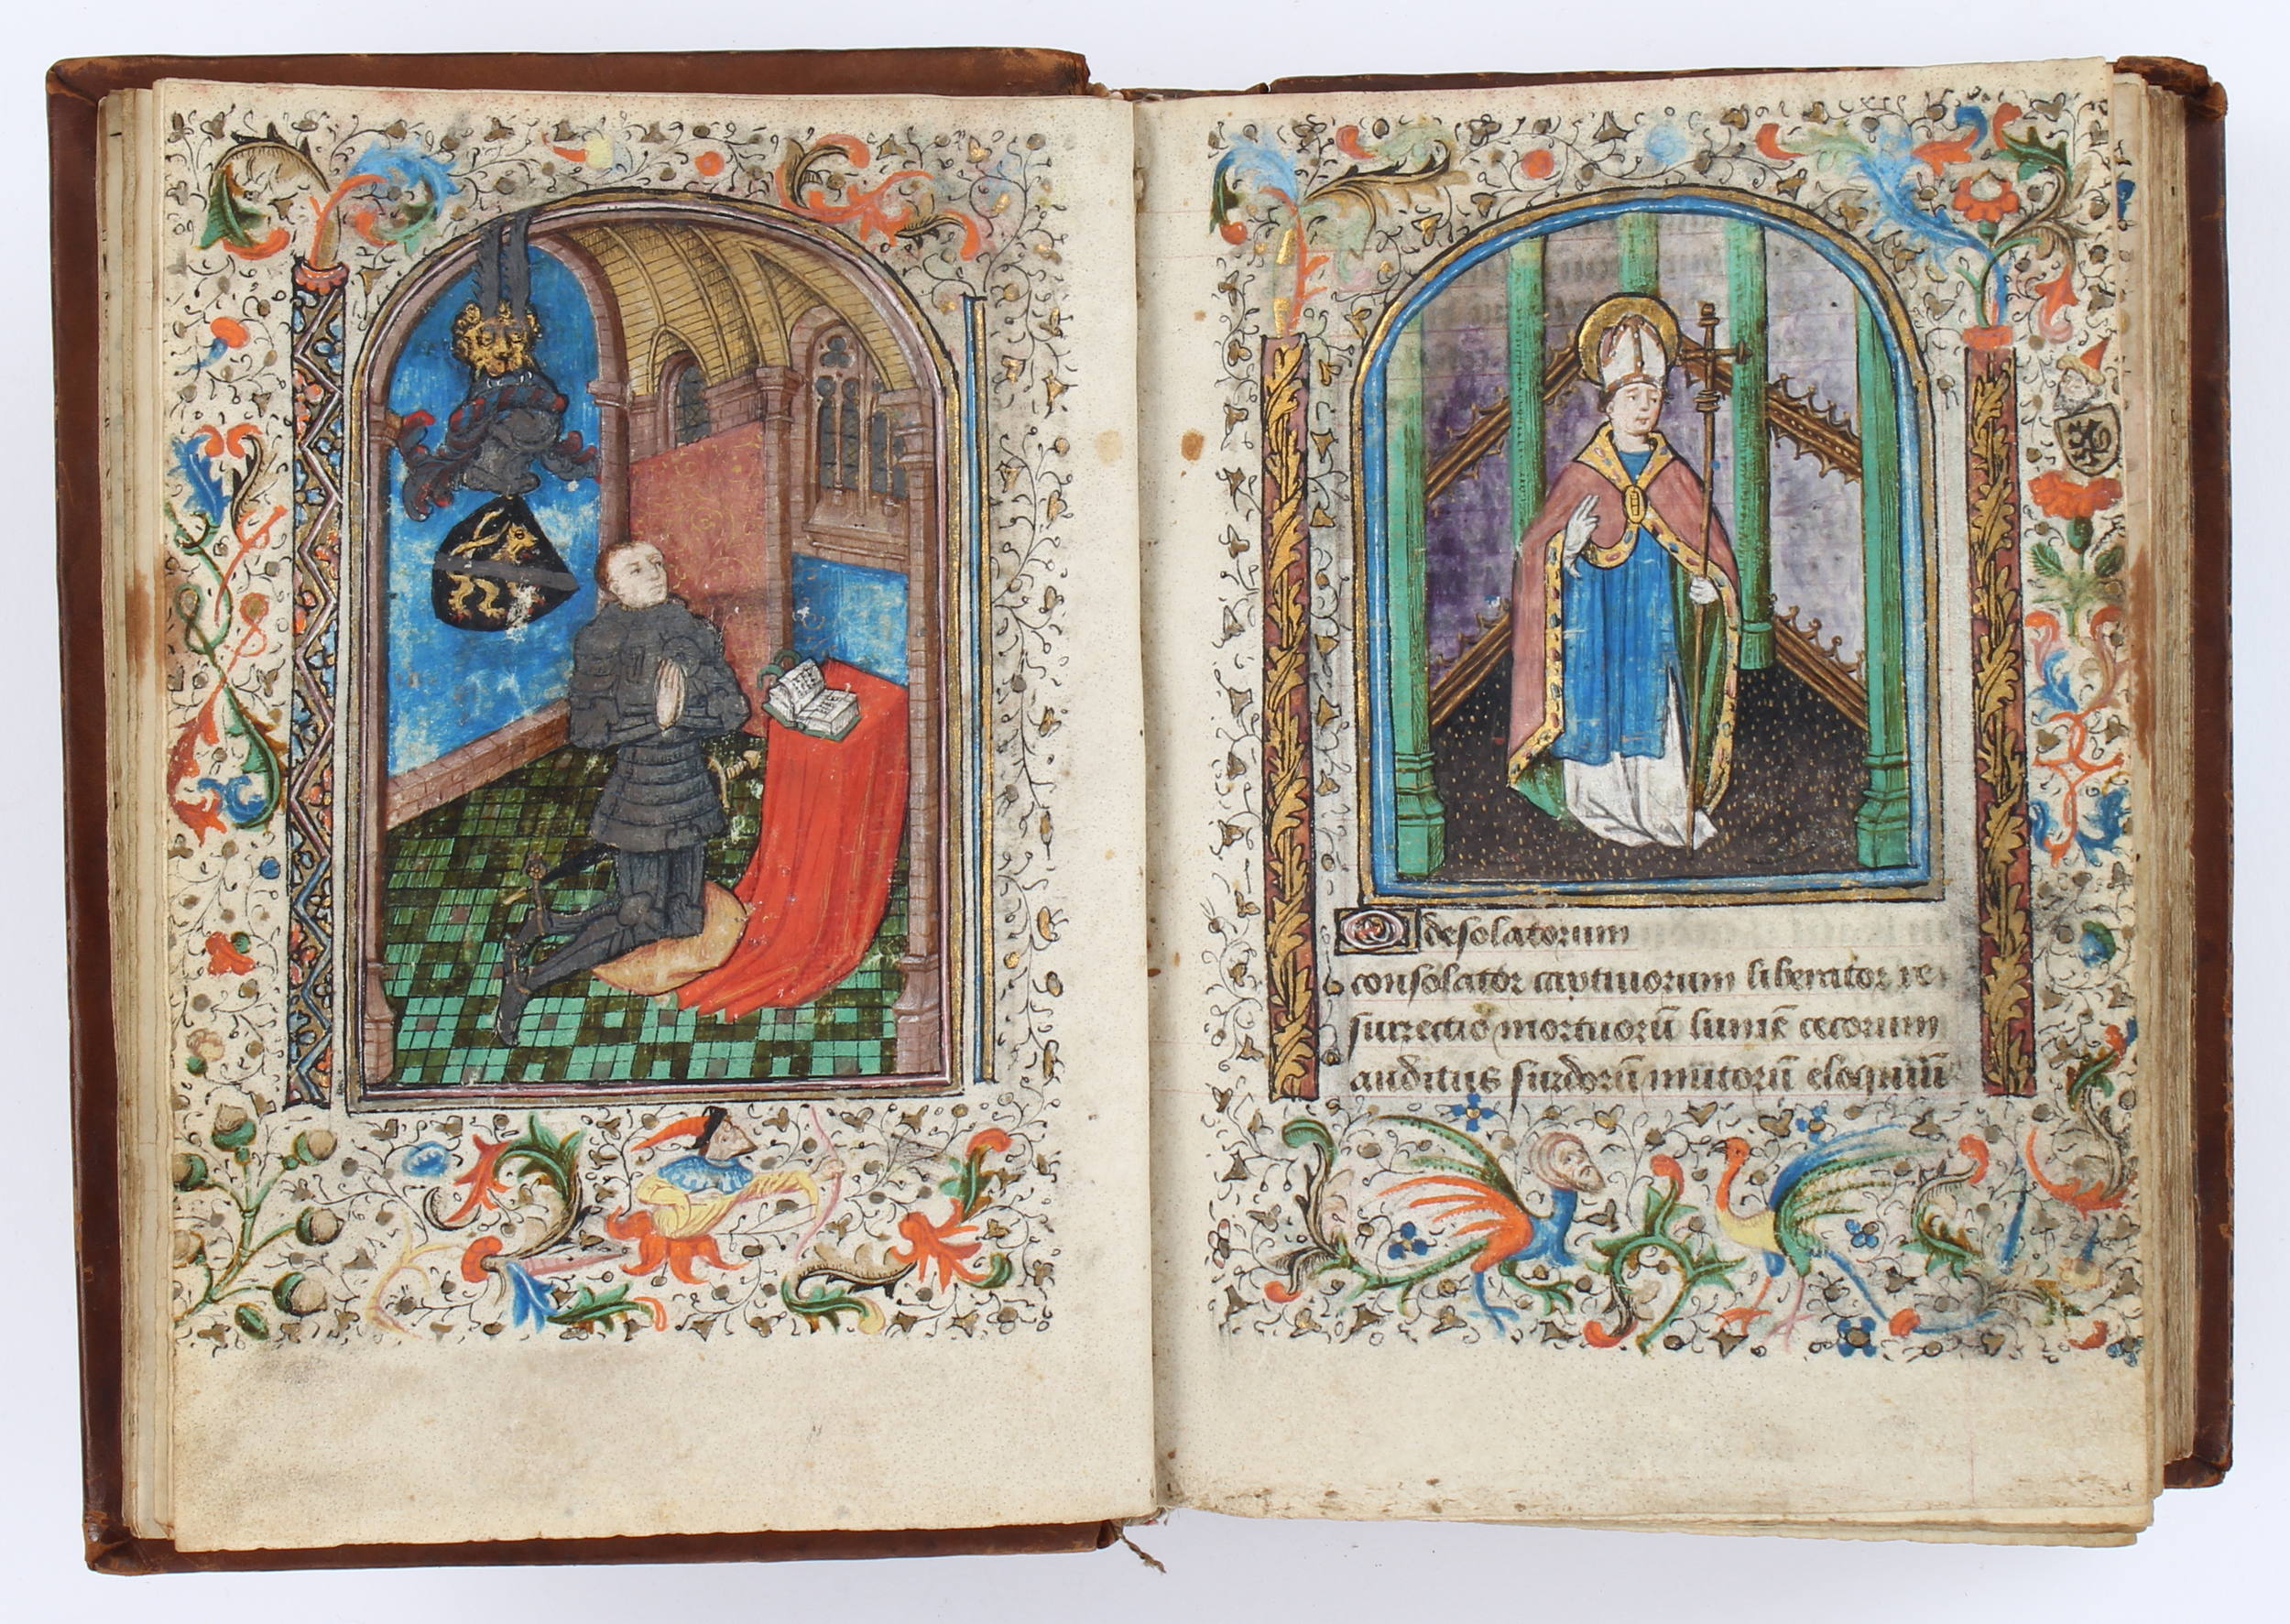 O desolatorum
consolator captiuorum liberator re
surrectio mortuorū lumē cecorum
auditus surdorū mutorū eloquiū